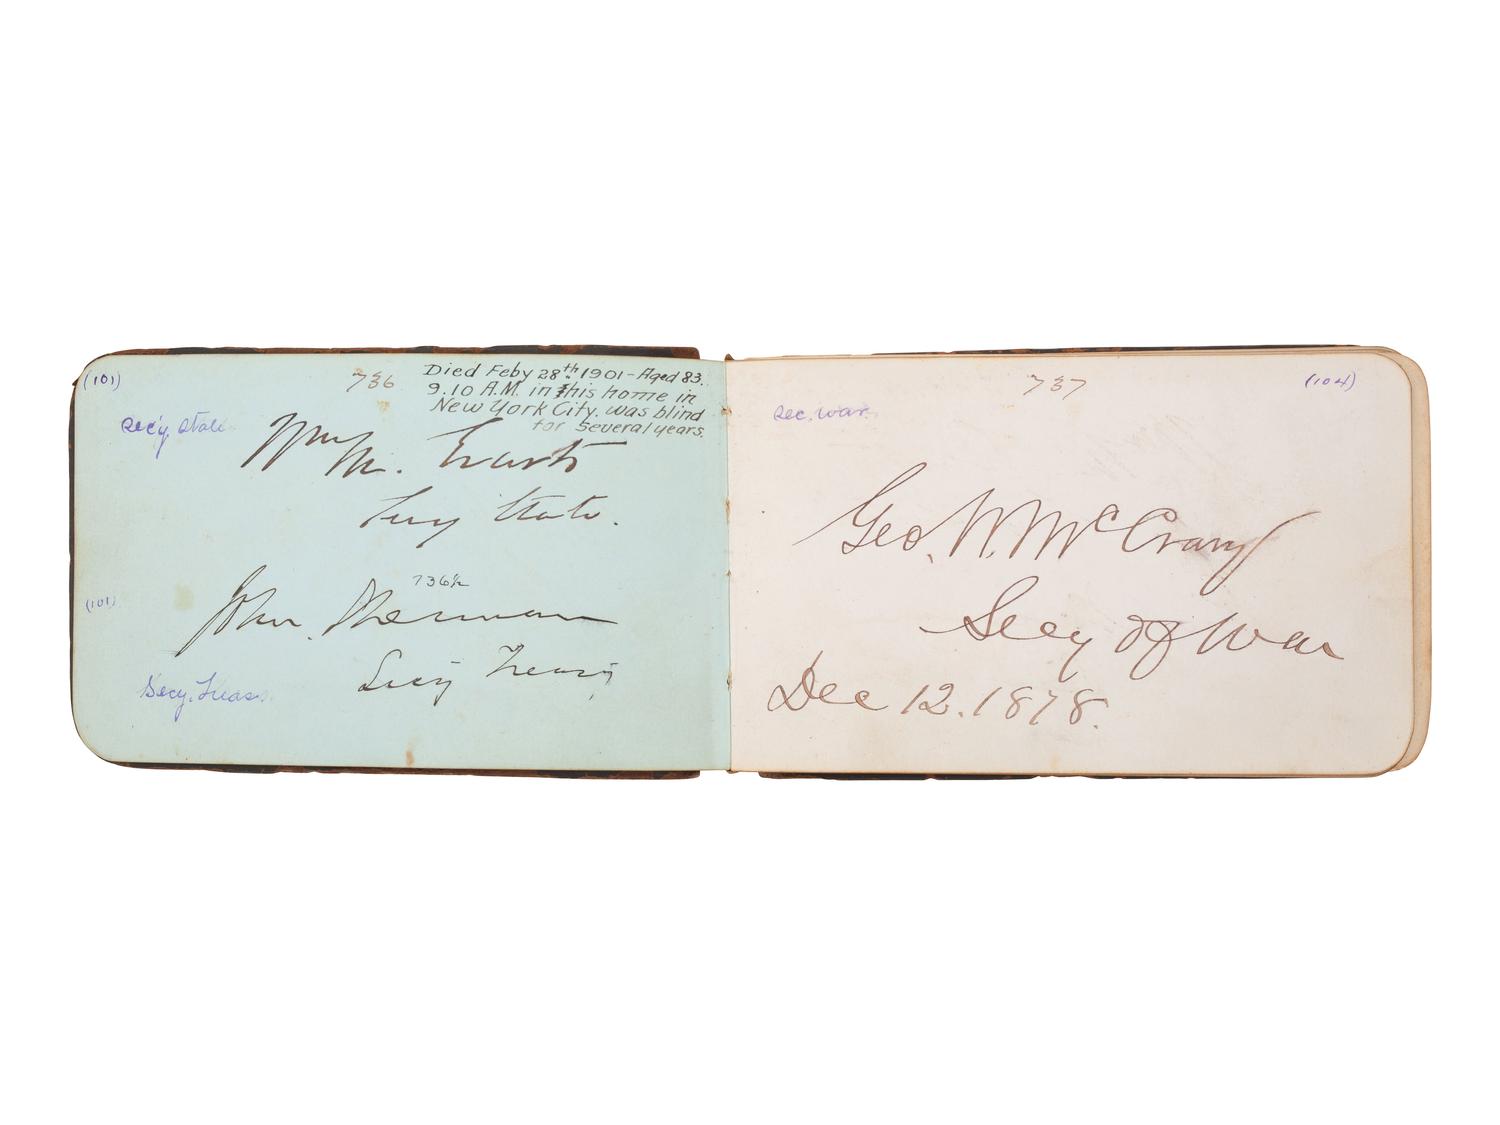 (101)
736
Died Feby 28th 1901 - Aged 83.
9.10 A.M. in this home in
New York City. was blind
for several years.
Sec'y. State
Wm M. Evarts
Secy State.
736½
(101)
John Sherman
Secy Treasy
Secy. Treas.
737
(104)
Sec. War.
Geo. W. McCrary
Secy of War
Dec 12. 1878.